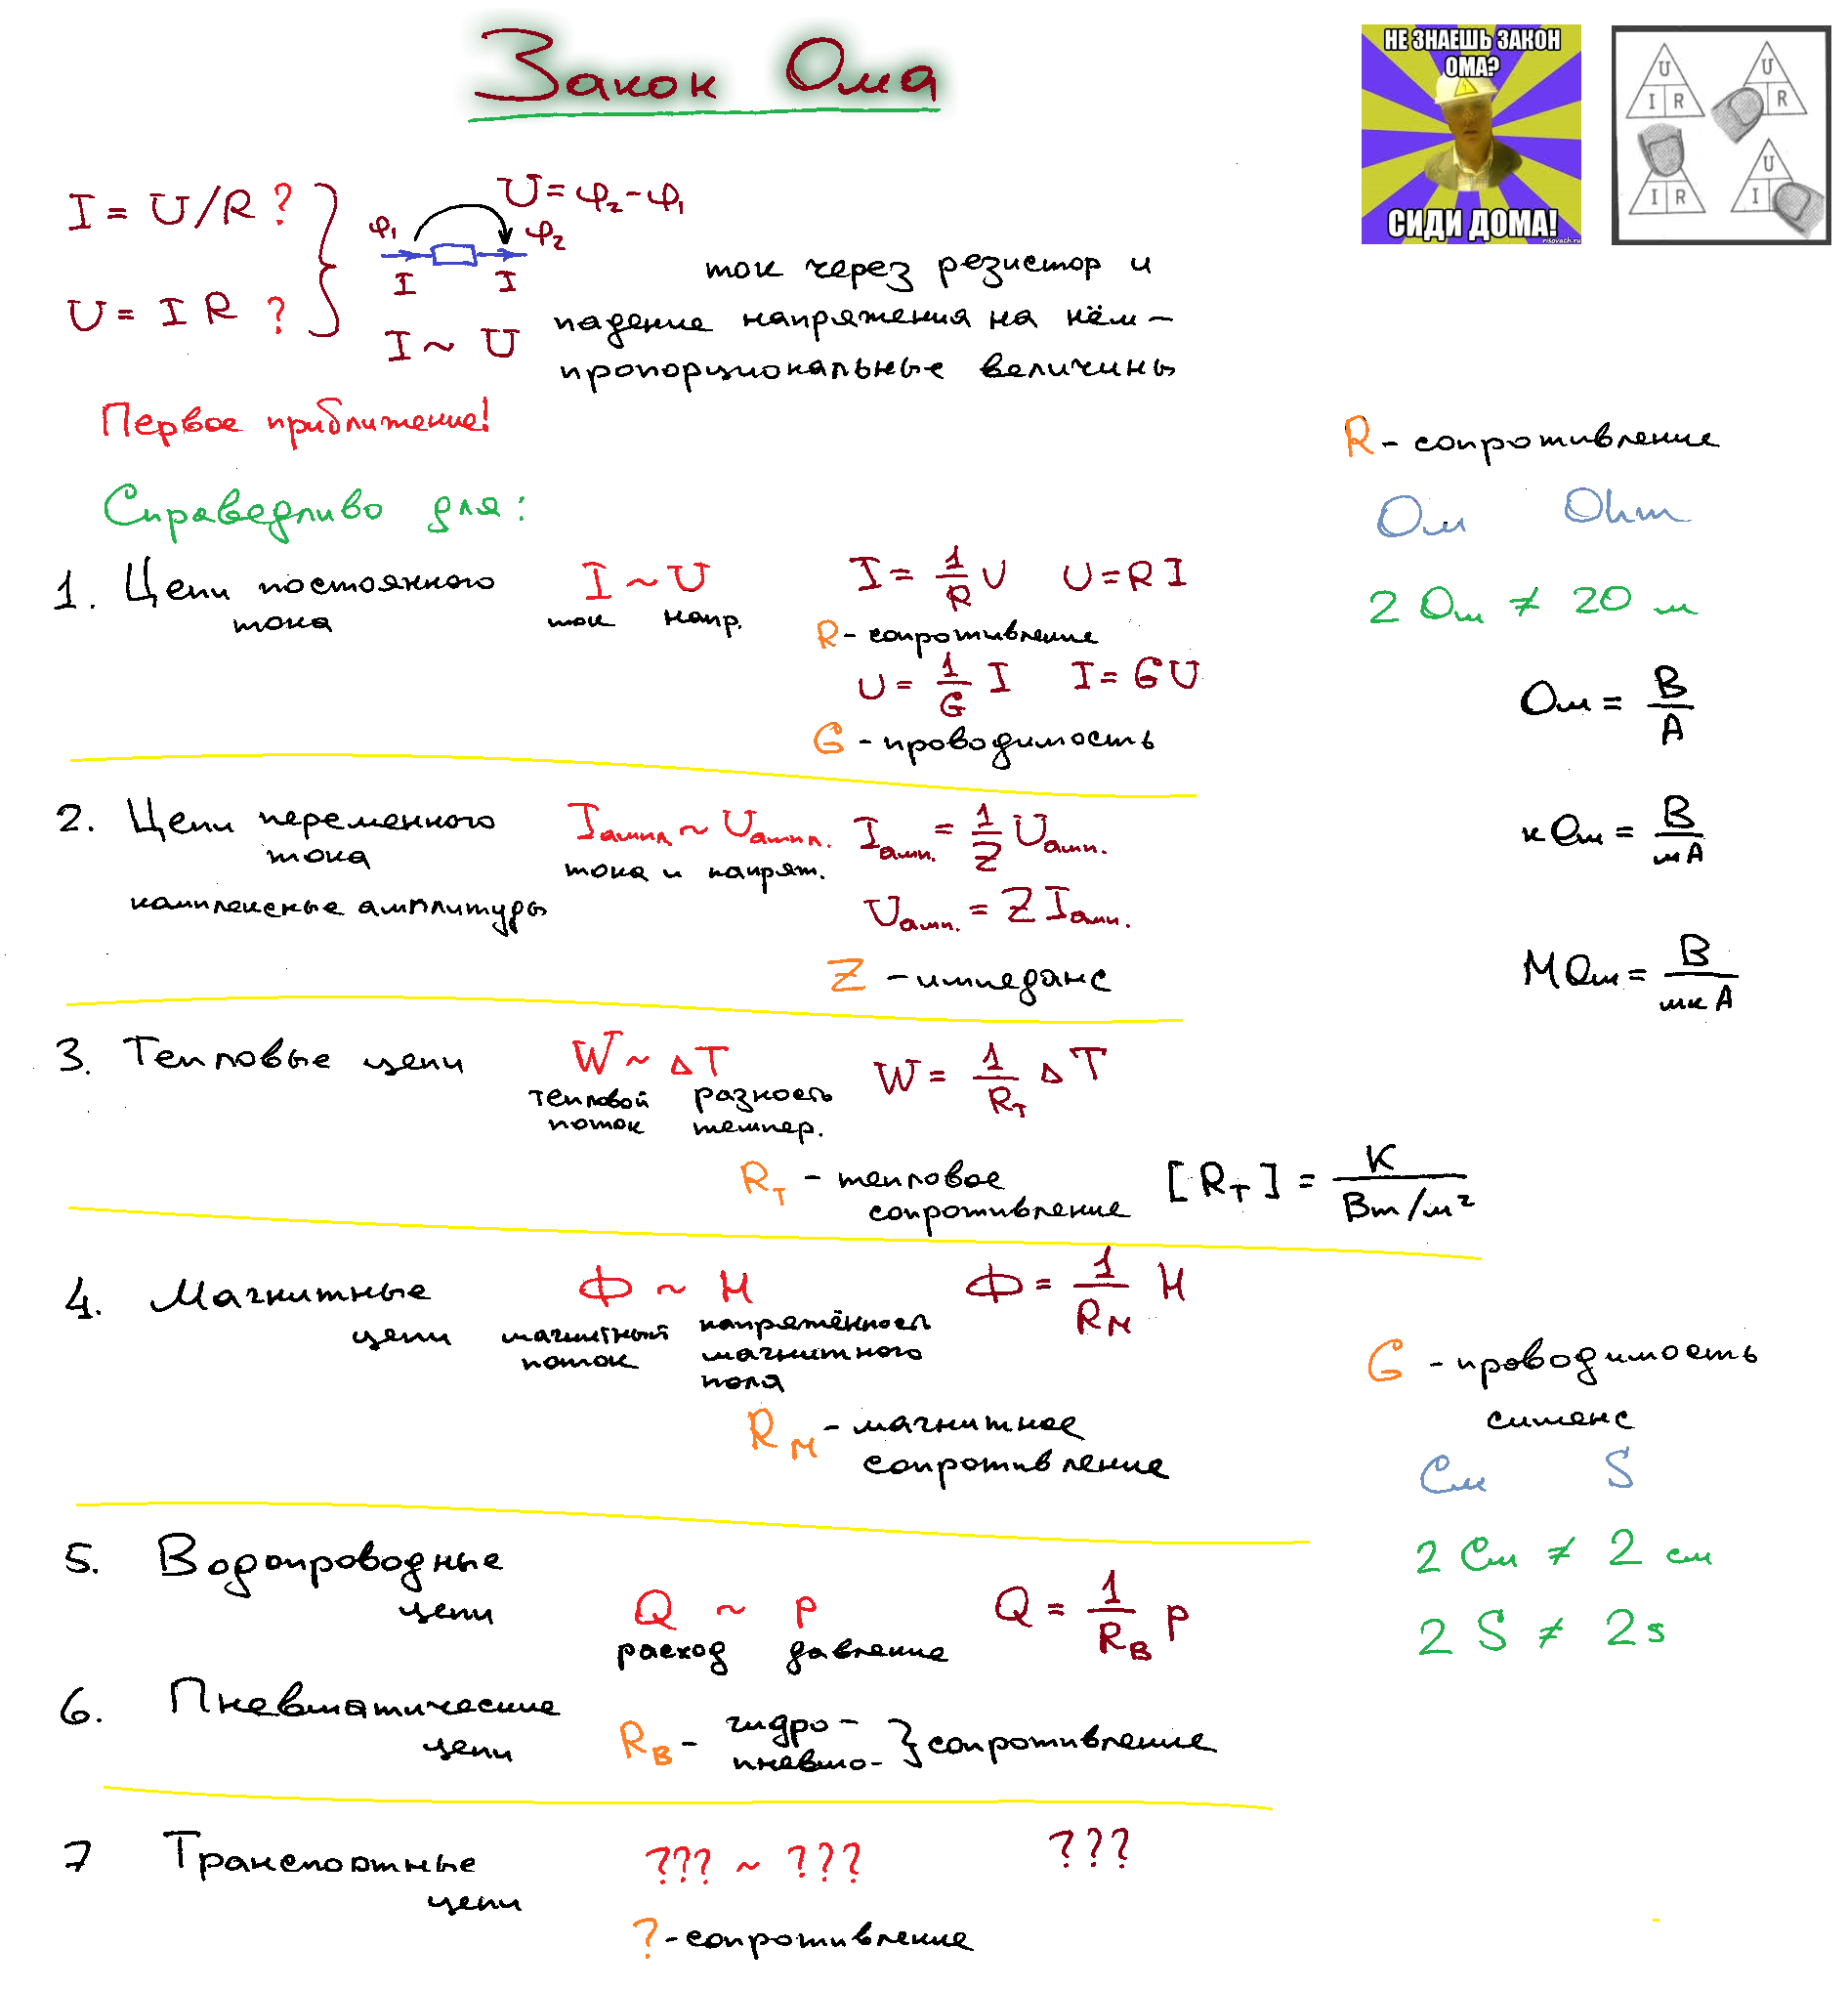 Закон Ома
НЕ ЗНАЕШЬ ЗАКОН
ОМА?
СИДИ ДОМА!
risovach.ru
U
I R
U
R
I R
U
I
I = U/R ?
U = I R ?
φ₁
U = φ₂ - φ₁
φ₂
I I
I ~ U
ток через резистор и
падение напряжения на нём –
пропорциональные величины
Первое приближение!
Справедливо для:
1. Цепи постоянного
тока
I ~ U
ток напр.
I = 1/R U U = R I
R - сопротивление
U = 1/G I I = G U
G - проводимость
2. Цепи переменного
тока
комплексные амплитуды
Iампл ~ Uампл.
тока и напряж.
Iамп. = 1/Z Uамп.
Uамп. = Z Iамп.
Z - импеданс
3. Тепловые цепи
W ~ ΔT
тепловой разность
поток темпер.
W = 1/Rт ΔT
Rт - тепловое
сопротивление
[Rт] = К/(Вт/м²)
4. Магнитные
цепи
Ф ~ H
магнитный напряжённость
поток магнитного
поля
Ф = 1/Rм H
Rм - магнитное
сопротивление
5. Водопроводные
цепи
Q ~ P
расход давление
Q = 1/RВ P
6. Пневматические
цепи
RВ - гидро-
пневмо- } сопротивление
7 Транспортные
цепи
??? ~ ???
???
? - сопротивление
R - сопротивление
Ом Ohm
2 Ом ≠ 20 м
Ом = В/А
кОм = В/мА
МОм = В/мкА
G - проводимость
сименс
См S
2 См ≠ 2 см
2 S ≠ 2 s